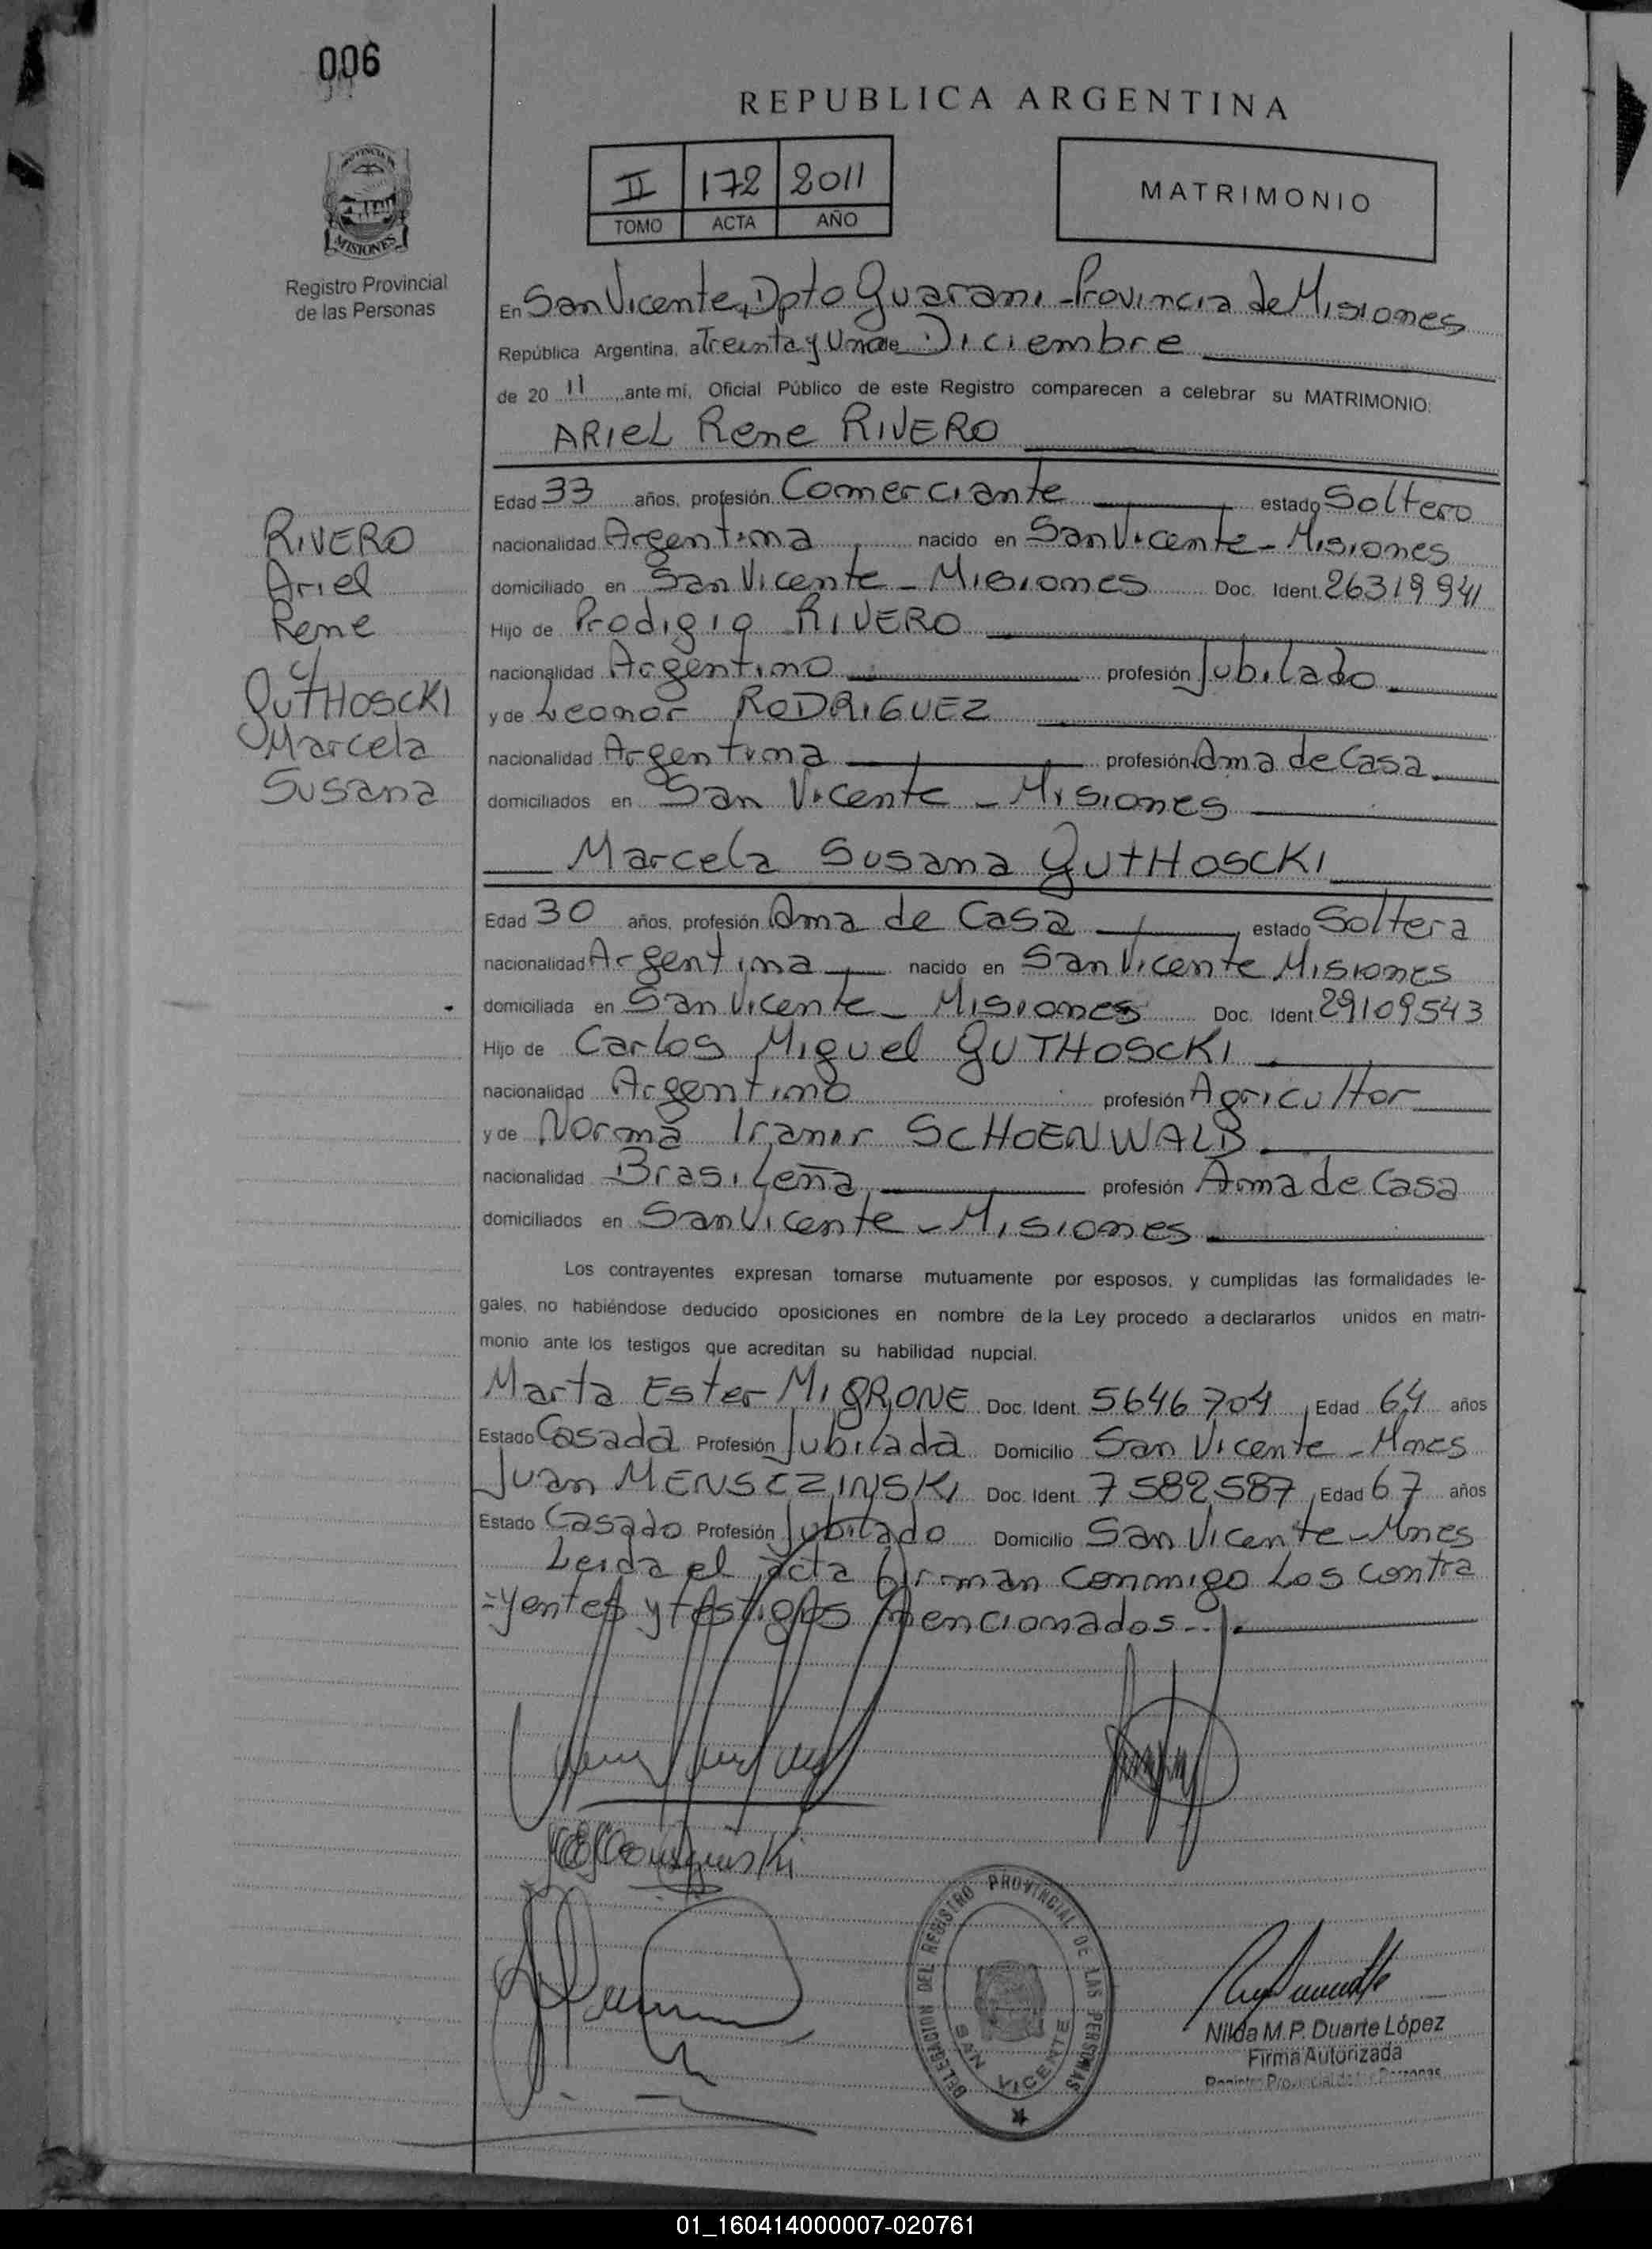 006
REPUBLICA ARGENTINA
II 172 2011
TOMO ACTA AÑO
MATRIMONIO
PROVINCIA DE
MISIONES
Registro Provincial
de las Personas
En San Vicente, Dpto Guarani - Provincia de Misiones
República Argentina, a Treinta y Uno de Diciembre
de 20 11 ante mí, Oficial Público de este Registro comparecen a celebrar su MATRIMONIO:
ARIEL Rene RIVERO
Edad 33 años, profesión Comerciante estado Soltero
nacionalidad Argentina nacido en San Vicente - Misiones
domiciliado en San Vicente - Misiones Doc. Ident. 26319941
Hijo de Prodigio RIVERO
nacionalidad Argentino profesión Jubilado
y de Leonor RODRIGUEZ
nacionalidad Argentina profesión Ama de Casa
domiciliados en San Vicente - Misiones
RIVERO
Ariel
Rene
y
GUTHOSCKI
Marcela
Susana
Marcela Susana GUTHOSCKI
Edad 30 años, profesión Ama de Casa estado Soltera
nacionalidad Argentina nacido en San Vicente Misiones
domiciliada en San Vicente - Misiones Doc. Ident. 29109543
Hijo de Carlos Miguel GUTHOSCKI
nacionalidad Argentino profesión Agricultor
y de Norma Iranir SCHOENWALD
nacionalidad Brasileña profesión Ama de Casa
domiciliados en San Vicente - Misiones
Los contrayentes expresan tomarse mutuamente por esposos, y cumplidas las formalidades le-
gales, no habiéndose deducido oposiciones en nombre de la Ley procedo a declararlos unidos en matri-
monio ante los testigos que acreditan su habilidad nupcial.
Marta Ester MIGRONE Doc. Ident. 5646704 Edad 64 años
Estado Casada Profesión Jubilada Domicilio San Vicente - Mnes
Juan MENSCZINSKI Doc. Ident. 7582587 Edad 67 años
Estado Casado Profesión Jubilado Domicilio San Vicente - Mnes
Leida el acta firman conmigo Los contra
=yentes y testigos mencionados..
DELEGACION DEL REGISTRO PROVINCIAL DE LAS PERSONAS
SAN VICENTE
Nilda M.P. Duarte López
Firma Autorizada
Registro Provincial de las Personas
01_160414000007-020761